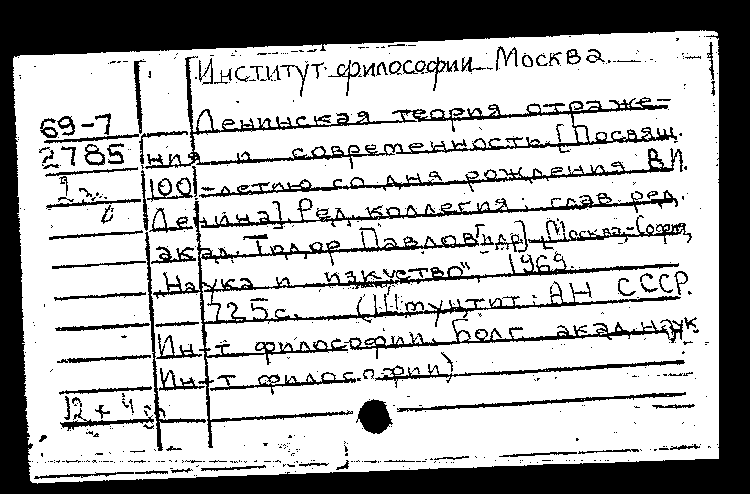 Институт философии Москва
69-7
Ленинская теория отраже-
2785
ния и современность. [Посвящ.
100-летию со дня рождения В.И.
Ленина]. Ред. коллегия: глав. ред.
акад. Тодор Павлов [и др.] [Москва,-София,
"Наука и изкуство", 1969.
725с. (Шмуцтит: АН СССР.
Ин-т философии. Болг. акад. наук
Ин-т философии)
12 + 4